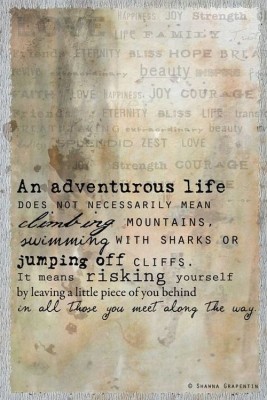 HAPPINESS JOY Strength
LIFE FAMILY
ETERNITY BLISS HOPE
beauty
LOVE HAPPINESS JOY COURAGE
ETERNITY BLISS LIFE
extraordinary beauty
SPLENDID ZEST LOVE
Strength COURAGE
An adventurous life
DOES NOT NECESSARILY MEAN
climbing MOUNTAINS,
swimming WITH SHARKS OR
jumping off CLIFFS.
It means risking yourself
by leaving a little piece of you behind
in all those you meet along the way.
© SHANNA GRAPENTIN